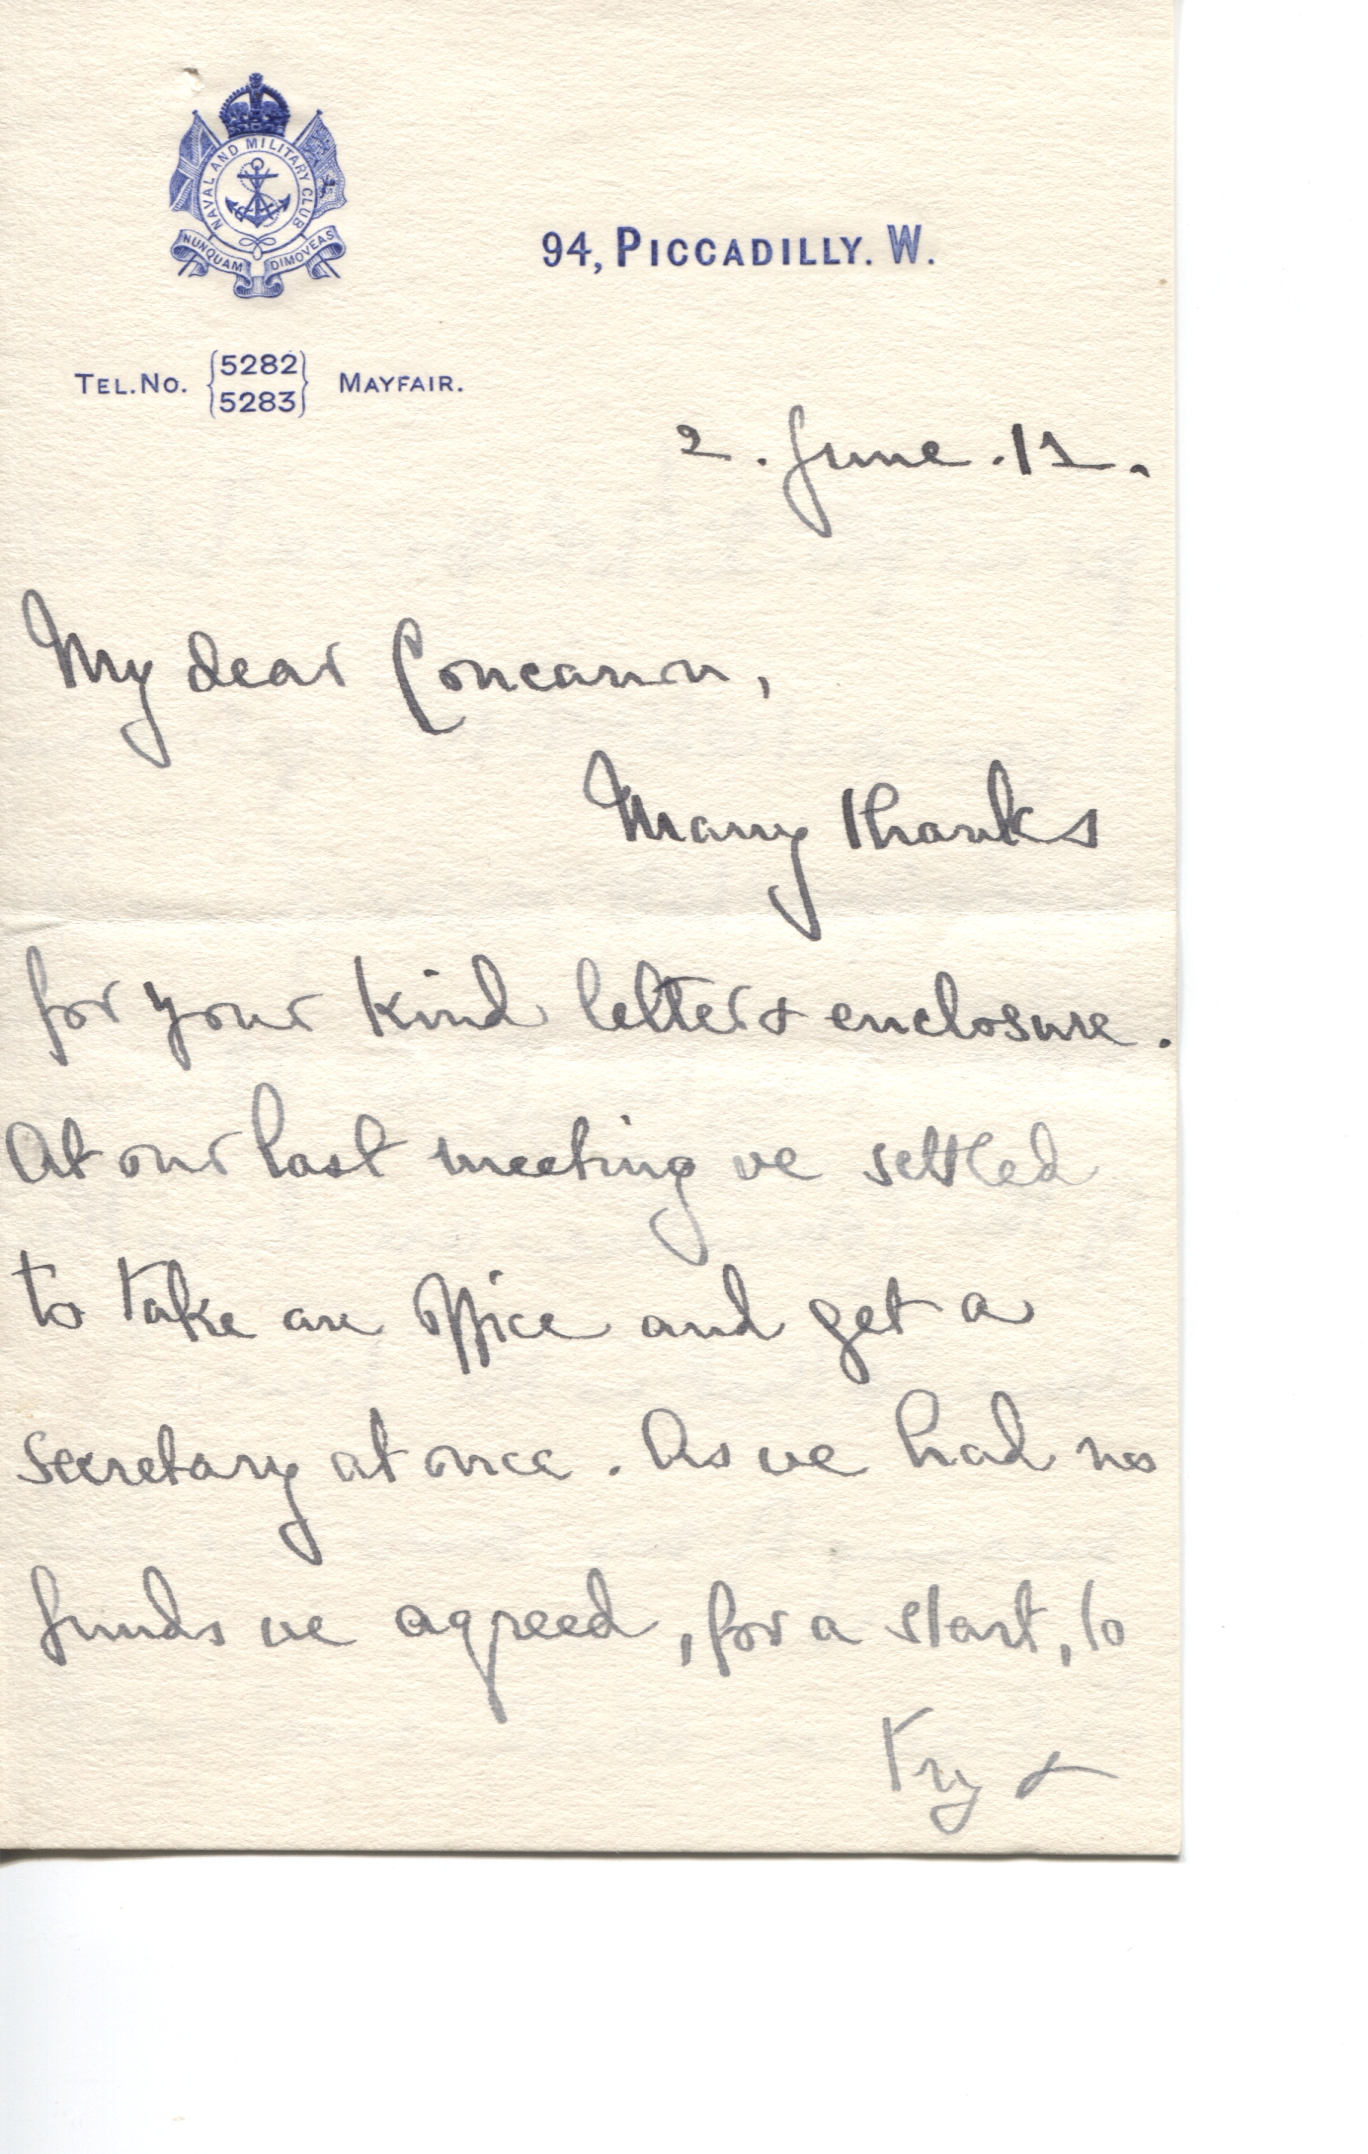 NAVAL AND MILITARY CLUB
NUNQUAM DIMOVEAS
94, PICCADILLY. W.
TEL. NO. {5282 5283} MAYFAIR.
2. June. 11.
My dear Concanon,
Many thanks
for your kind letter & enclosure.
At our last meeting we settled
to take an office and get a
secretary at once. As we had no
funds we agreed, for a start, to
try &